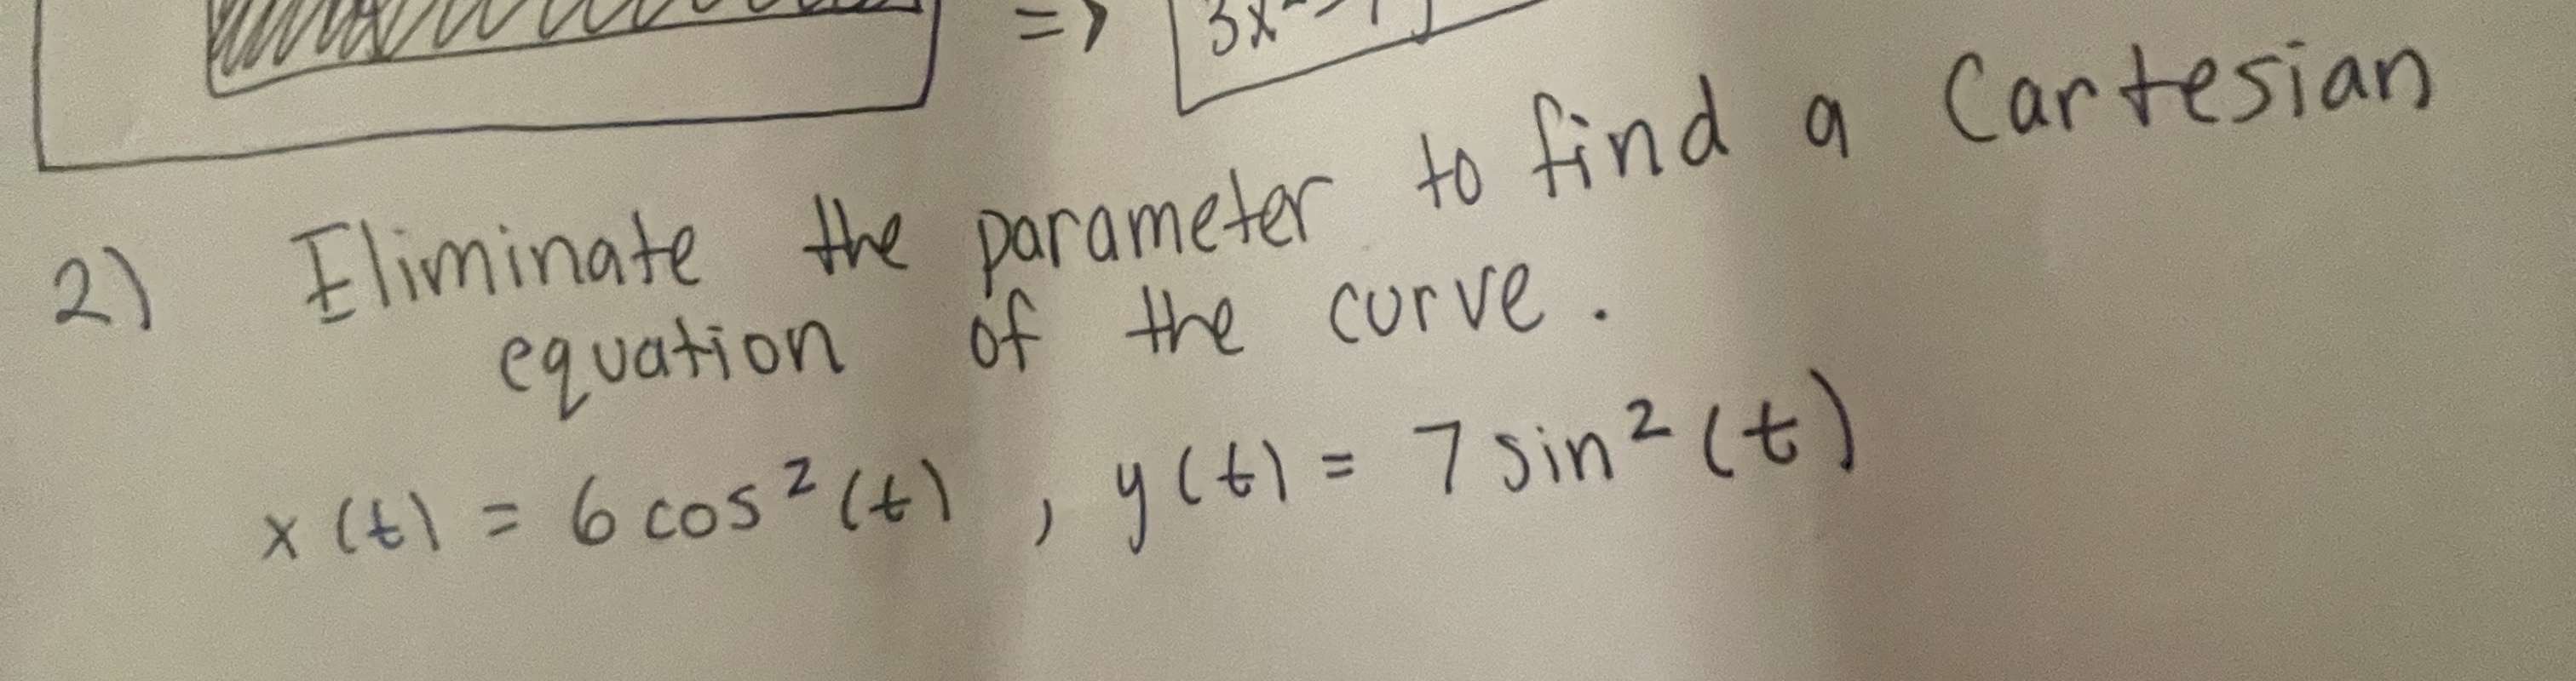 => 3x
2) Eliminate the parameter to find a Cartesian
equation of the curve.
x(t) = 6 cos²(t) , y(t) = 7 sin²(t)